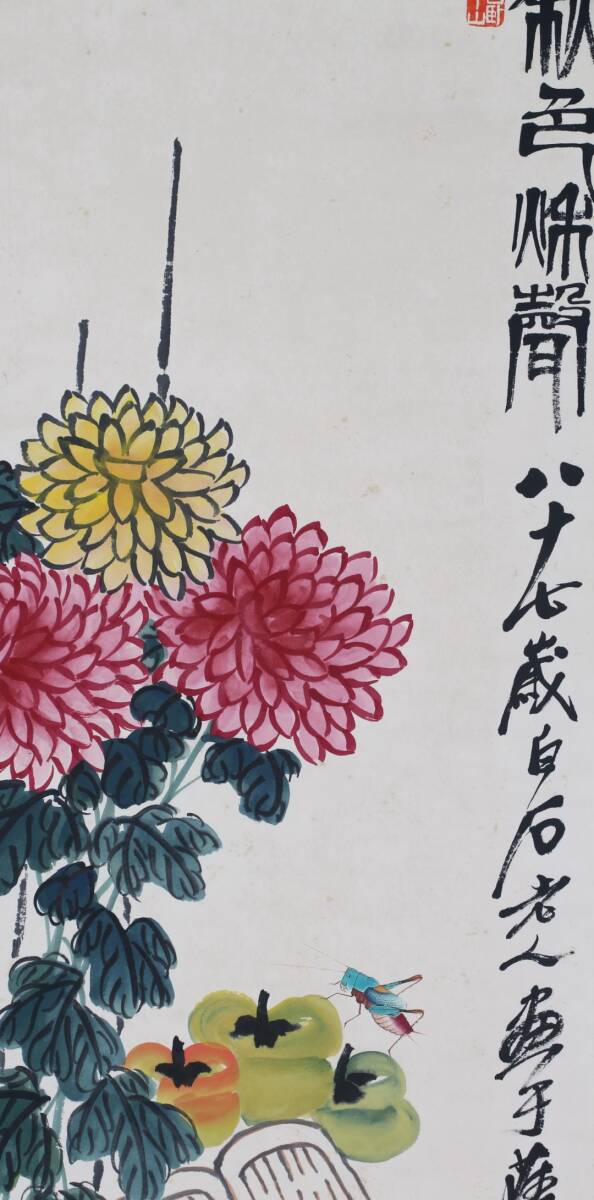 秋色秋聲 八十七歲白石老人畫于